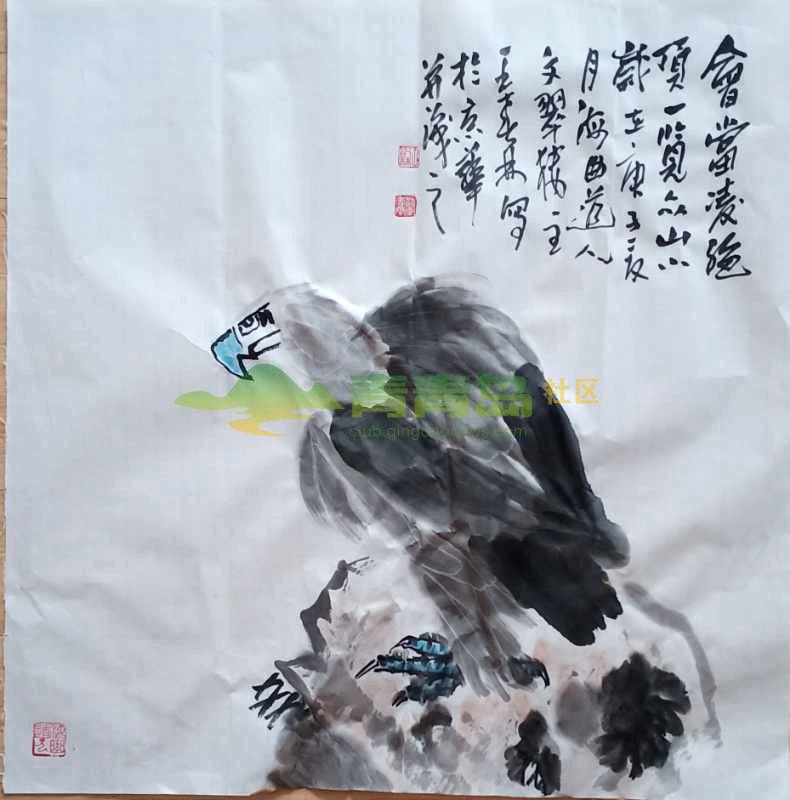 會當凌絕
頂一览众山小
歲在庚子夏
月海曲道人
文翠楼主
王春林写
於京華
並識之
青青岛社区
club.qingdaonews.com